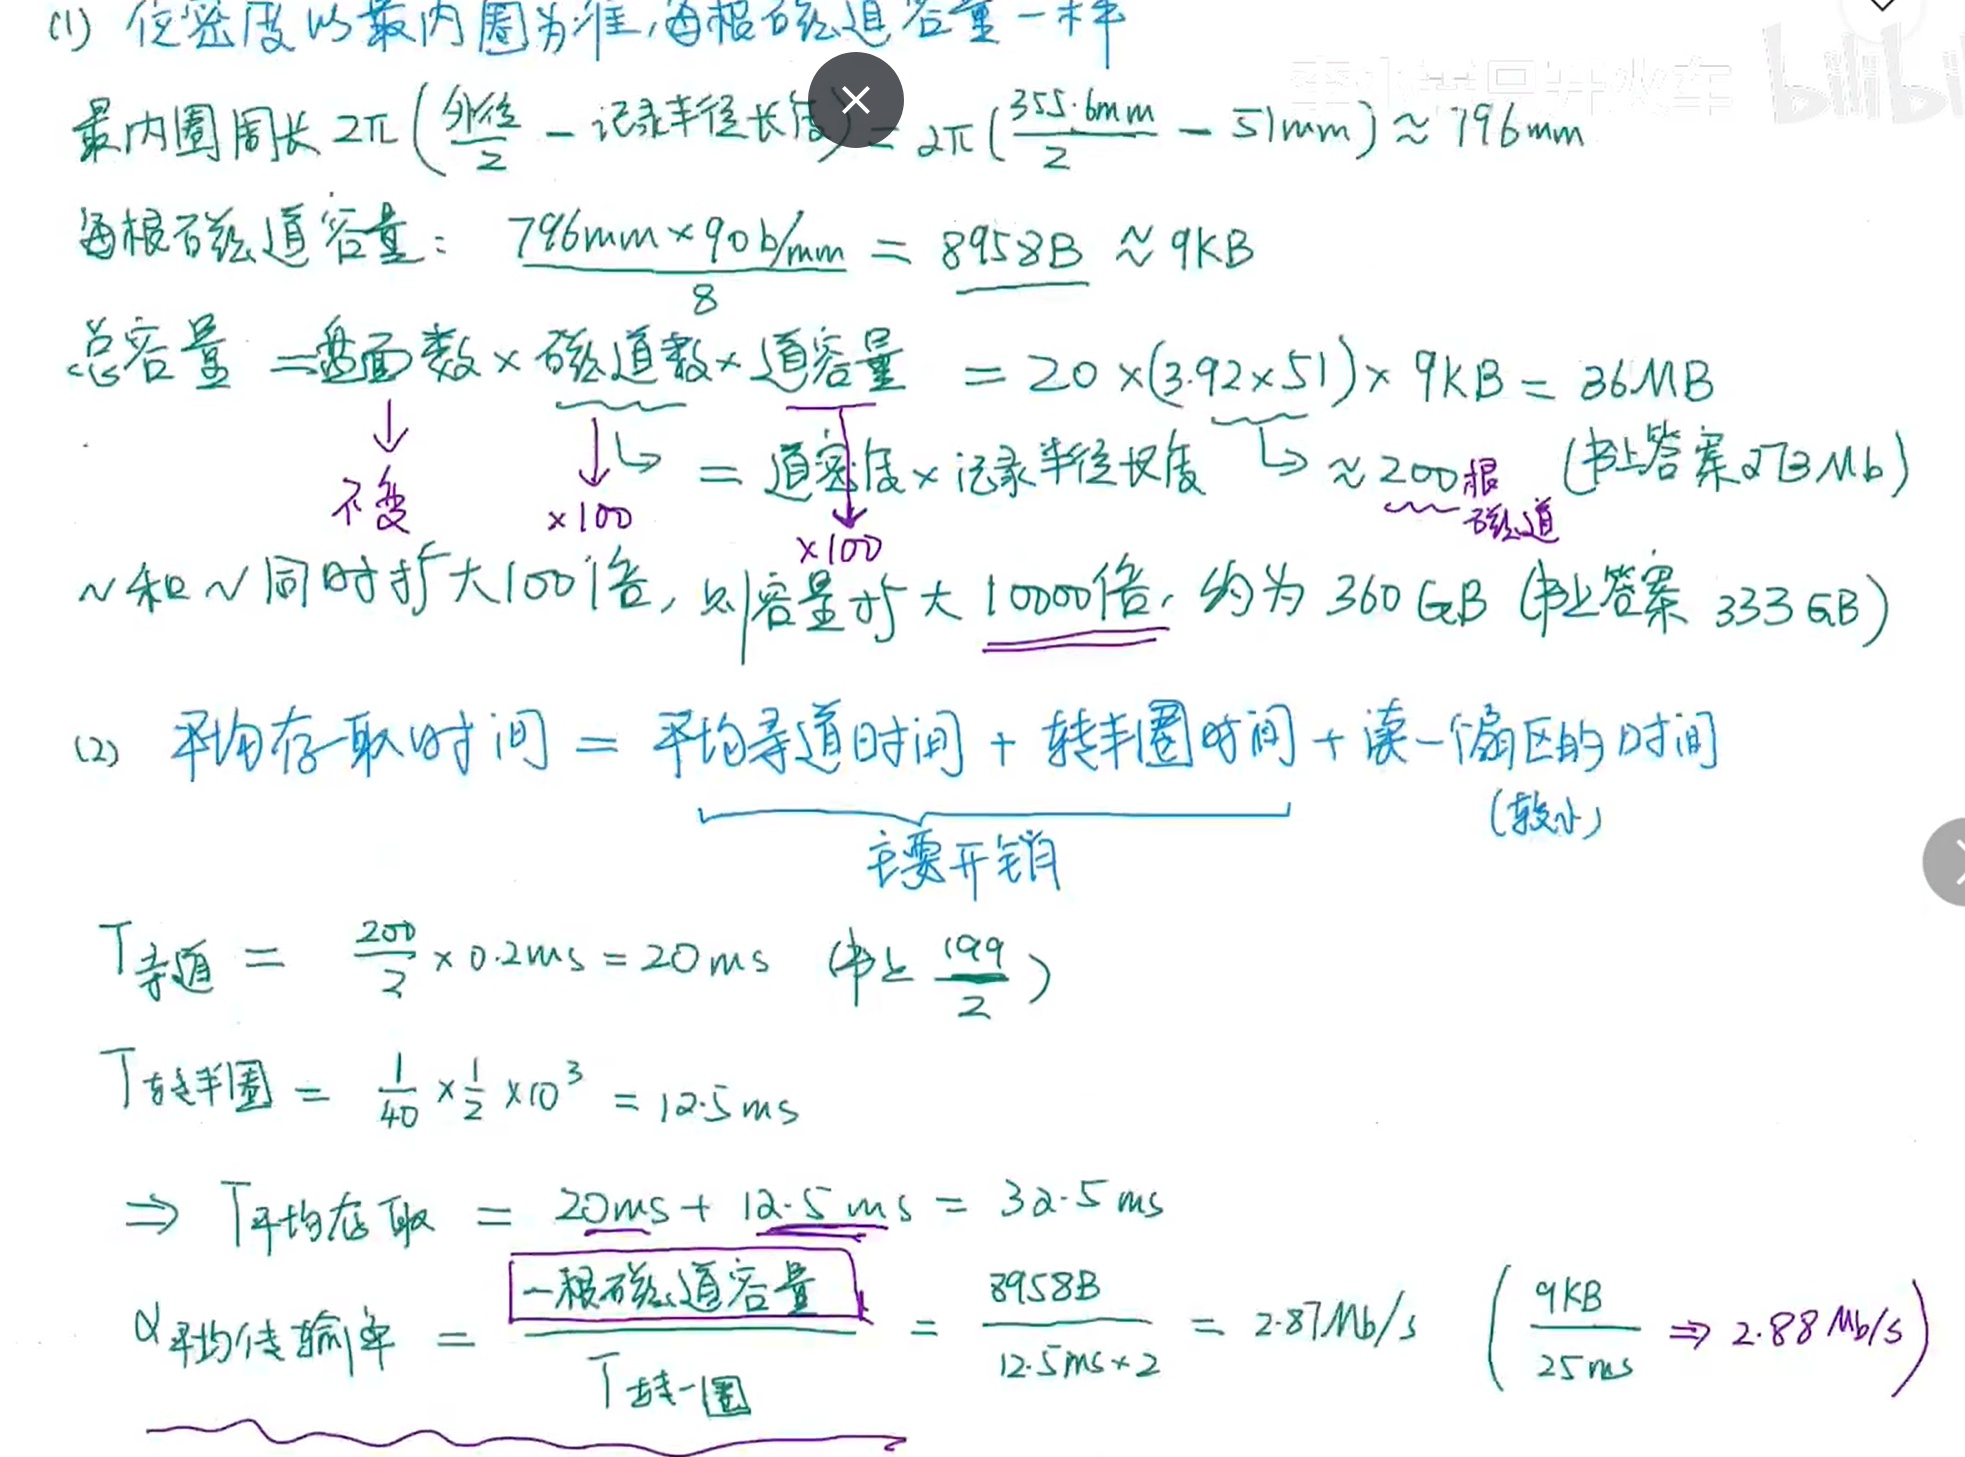 (1) 位密度以最内圈为准,每根磁道容量一样
最内圈周长 2π(外径/2 - 记录半径长度) = 2π(355.6mm/2 - 51mm) ≈ 796mm
每根磁道容量: 796mm×90b/mm / 8 = 8958B ≈ 9KB
总容量 = 盘面数 × 磁道数 × 道容量 = 20×(3.92×51)×9KB = 36MB
= 道密度 × 记录半径长度 ≈ 200根磁道 (书上答案273Mb)
不变 ×100 ×100
~和~同时扩大100倍, 则容量扩大10000倍, 约为360GB (书上答案 333GB)
(2) 平均存取时间 = 平均寻道时间 + 转半圈时间 + 读一个扇区的时间
(较小)
主要开销
T寻道 = 200/2 × 0.2ms = 20ms (书上 199/2)
T转半圈 = 1/40 × 1/2 × 10³ = 12.5ms
⇒ T平均存取 = 20ms + 12.5ms = 32.5ms
α平均传输率 = 一根磁道容量 / T转一圈 = 8958B / 12.5ms×2 = 2.87Mb/s (9KB / 25ms ⇒ 2.88Mb/s)
bilibi